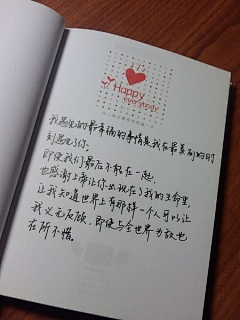 Happy
everybody
我遇见的最幸福的事情是我在最美的时
刻遇见了你.
即使我们最后不能在一起.
也感谢上帝让你出现在了我的生命里,
让我知道世界上有那样一个人可以让
我义无反顾. 即使与全世界为敌也
在所不惜.